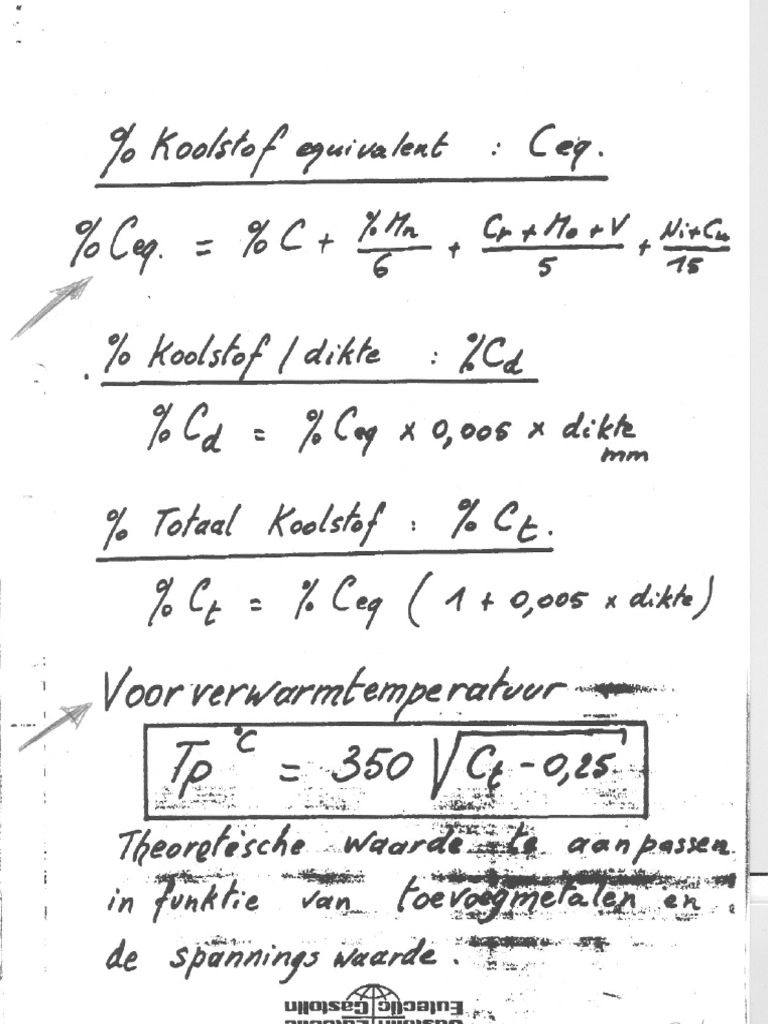 % Koolstof equivalent : Ceq.
%Ceq. = %C + %Mn/6 + Cr+Mo+V/5 + Ni+Cu/15
% Koolstof / dikte : %Cd
%Cd = %Ceq x 0,005 x dikte mm
% Totaal Koolstof : %Ct.
%Ct = %Ceq ( 1 + 0,005 x dikte )
Voorverwarmtemperatuur
Tp °C = 350 √Ct - 0,25
Theoretische waarde te aanpassen
in funktie van toevoegmetalen en
de spannings waarde.
Eutectic Castolin